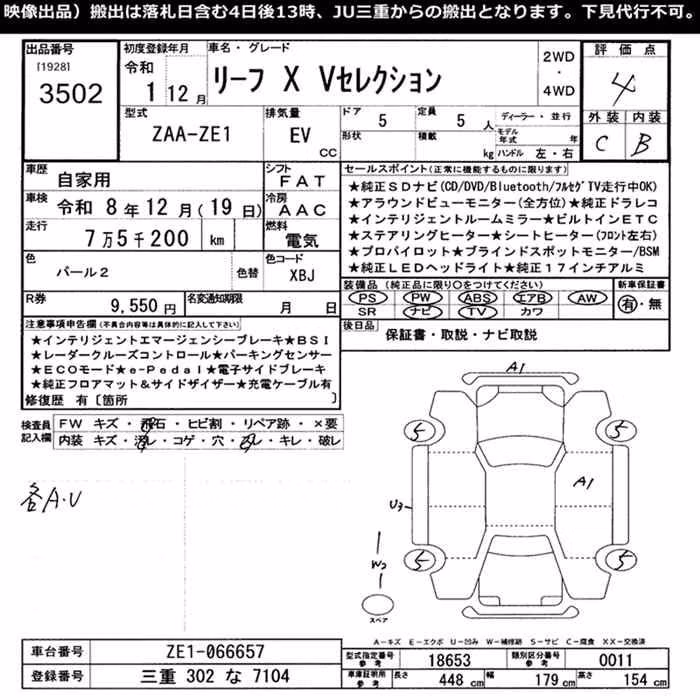 映像出品）搬出は落札日含む4日後13時、JU三重からの搬出となります。下見代行不可。
出品番号
[1928]
3502
初度登録年月
令和
1 12月
車名・グレード
リーフ X Vセレクション
2WD
・
4WD
評価点
4
外装 内装
C B
型式
ZAA-ZE1
排気量
EV
CC
ドア 5
形状
定員 5 人
積載 kg
ディーラー・並行
モデル年式 年
ハンドル 左・右
車歴 自家用
シフト FAT
車検 令和 8年12月(19日)
冷房 AAC
走行 7万5千200 km
燃料 電気
色 パール2 色替
色コード XBJ
R券 9,550円
名変通知期限 月 日
セールスポイント(正常に機能するものに限ります)
★純正SDナビ(CD/DVD/Bluetooth/フルセグTV走行中OK)
★アラウンドビューモニター(全方位)★純正ドラレコ
★インテリジェントルームミラー★ビルトインETC
★ステアリングヒーター★シートヒーター(フロント左右)
★プロパイロット★ブラインドスポットモニター/BSM
★純正LEDヘッドライト★純正17インチアルミ
装備品（純正品に限り○をつけてください）
PS PW ABS エアB AW
SR ナビ TV カワ
新車保証書
有・無
後日品 保証書・取説・ナビ取説
注意事項申告欄(不具合内容等は具体的に記入して下さい)
★インテリジェントエマージェンシーブレーキ★BSI
★レーダークルーズコントロール★パーキングセンサー
★ECOモード★e-Pedal★電子サイドブレーキ
★純正フロアマット&サイドザイザー★充電ケーブル有
修復歴 有〔箇所 〕
検査員記入欄
FW キズ・飛石・ヒビ割・リペア跡・×要
内装 キズ・汚レ・コゲ・穴・スレ・キレ・破レ
各A・U
A1
5 5
A1
U3
W2
5 5
スペア
A-キズ E-エクボ U-凹み W-補修跡 S-サビ C-腐食 XX-交換済
車台番号 ZE1-066657
登録番号 三重 302 な 7104
型式指定番号 参考 18653
類別区分番号 参考 0011
車庫証明用 参考 長さ 448 cm 幅 179 cm 高さ 154 cm